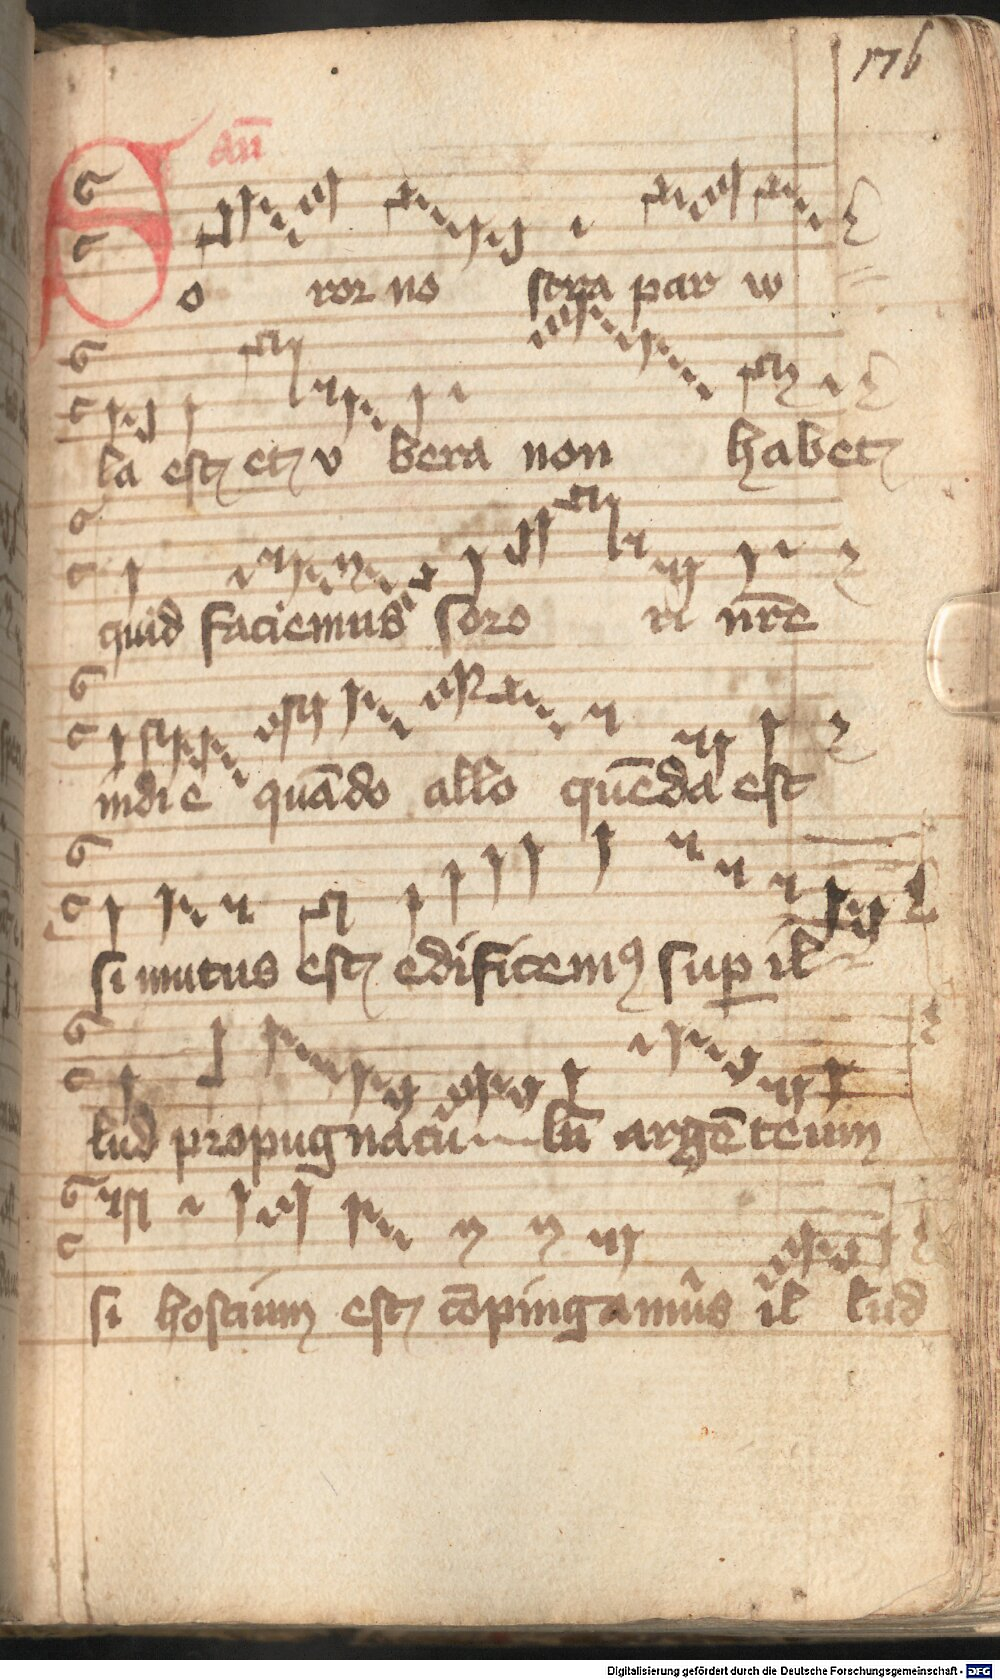 176
An̄
So ror no stra par w
la est et v bera non habet
quid faciemus soro ri nr̄e
in die quādo allo quēda est
si mutus est edificemꝰ suꝑ il
lud propugnacu lū argēteum
si hostium est cōpingamus il lud
Digitalisierung gefördert durch die Deutsche Forschungsgemeinschaft - DFG